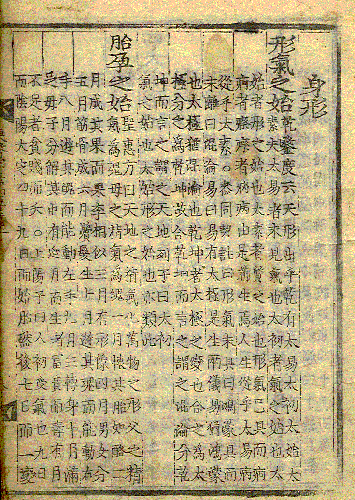 身形
形氣之始
乾鑿度云天形出乎乾有太易太初太始太
素夫太易者未見氣也太初者氣之始也太
始者形之始也太素者質之始也形氣已具而痾
痾者瘵瘵者病病由是萌生焉人生從乎太易病
從乎太素○參同契註曰形氣未具曰鴻濛具而
未離曰混淪易曰易有太極是生兩儀易猶鴻濛
也太極猶混淪也乾坤者太極之變也合之爲太
極分之爲乾坤故合乾坤而言之謂之混淪分乾
坤而言之謂之天地列子曰太初
氣之始也太始形之始也亦類此
胎孕之始
聖惠方曰天地之精氣化萬物之形父之精
氣爲魂母之精氣爲魄一月懷其胎如酪二
月成其果而果李相似三月有形像四月男女分
五月筋骨成六月鬢髮生七月遊其魂而能動右
手八月遊其魄而能動左手九月三轉身十月滿
足母子分解其中有延月而生者富貴而壽有月
不足者貧賤而夭○上陽子曰人初受氣也九日
而陰陽大定四十九日而始胎然後七日而一變